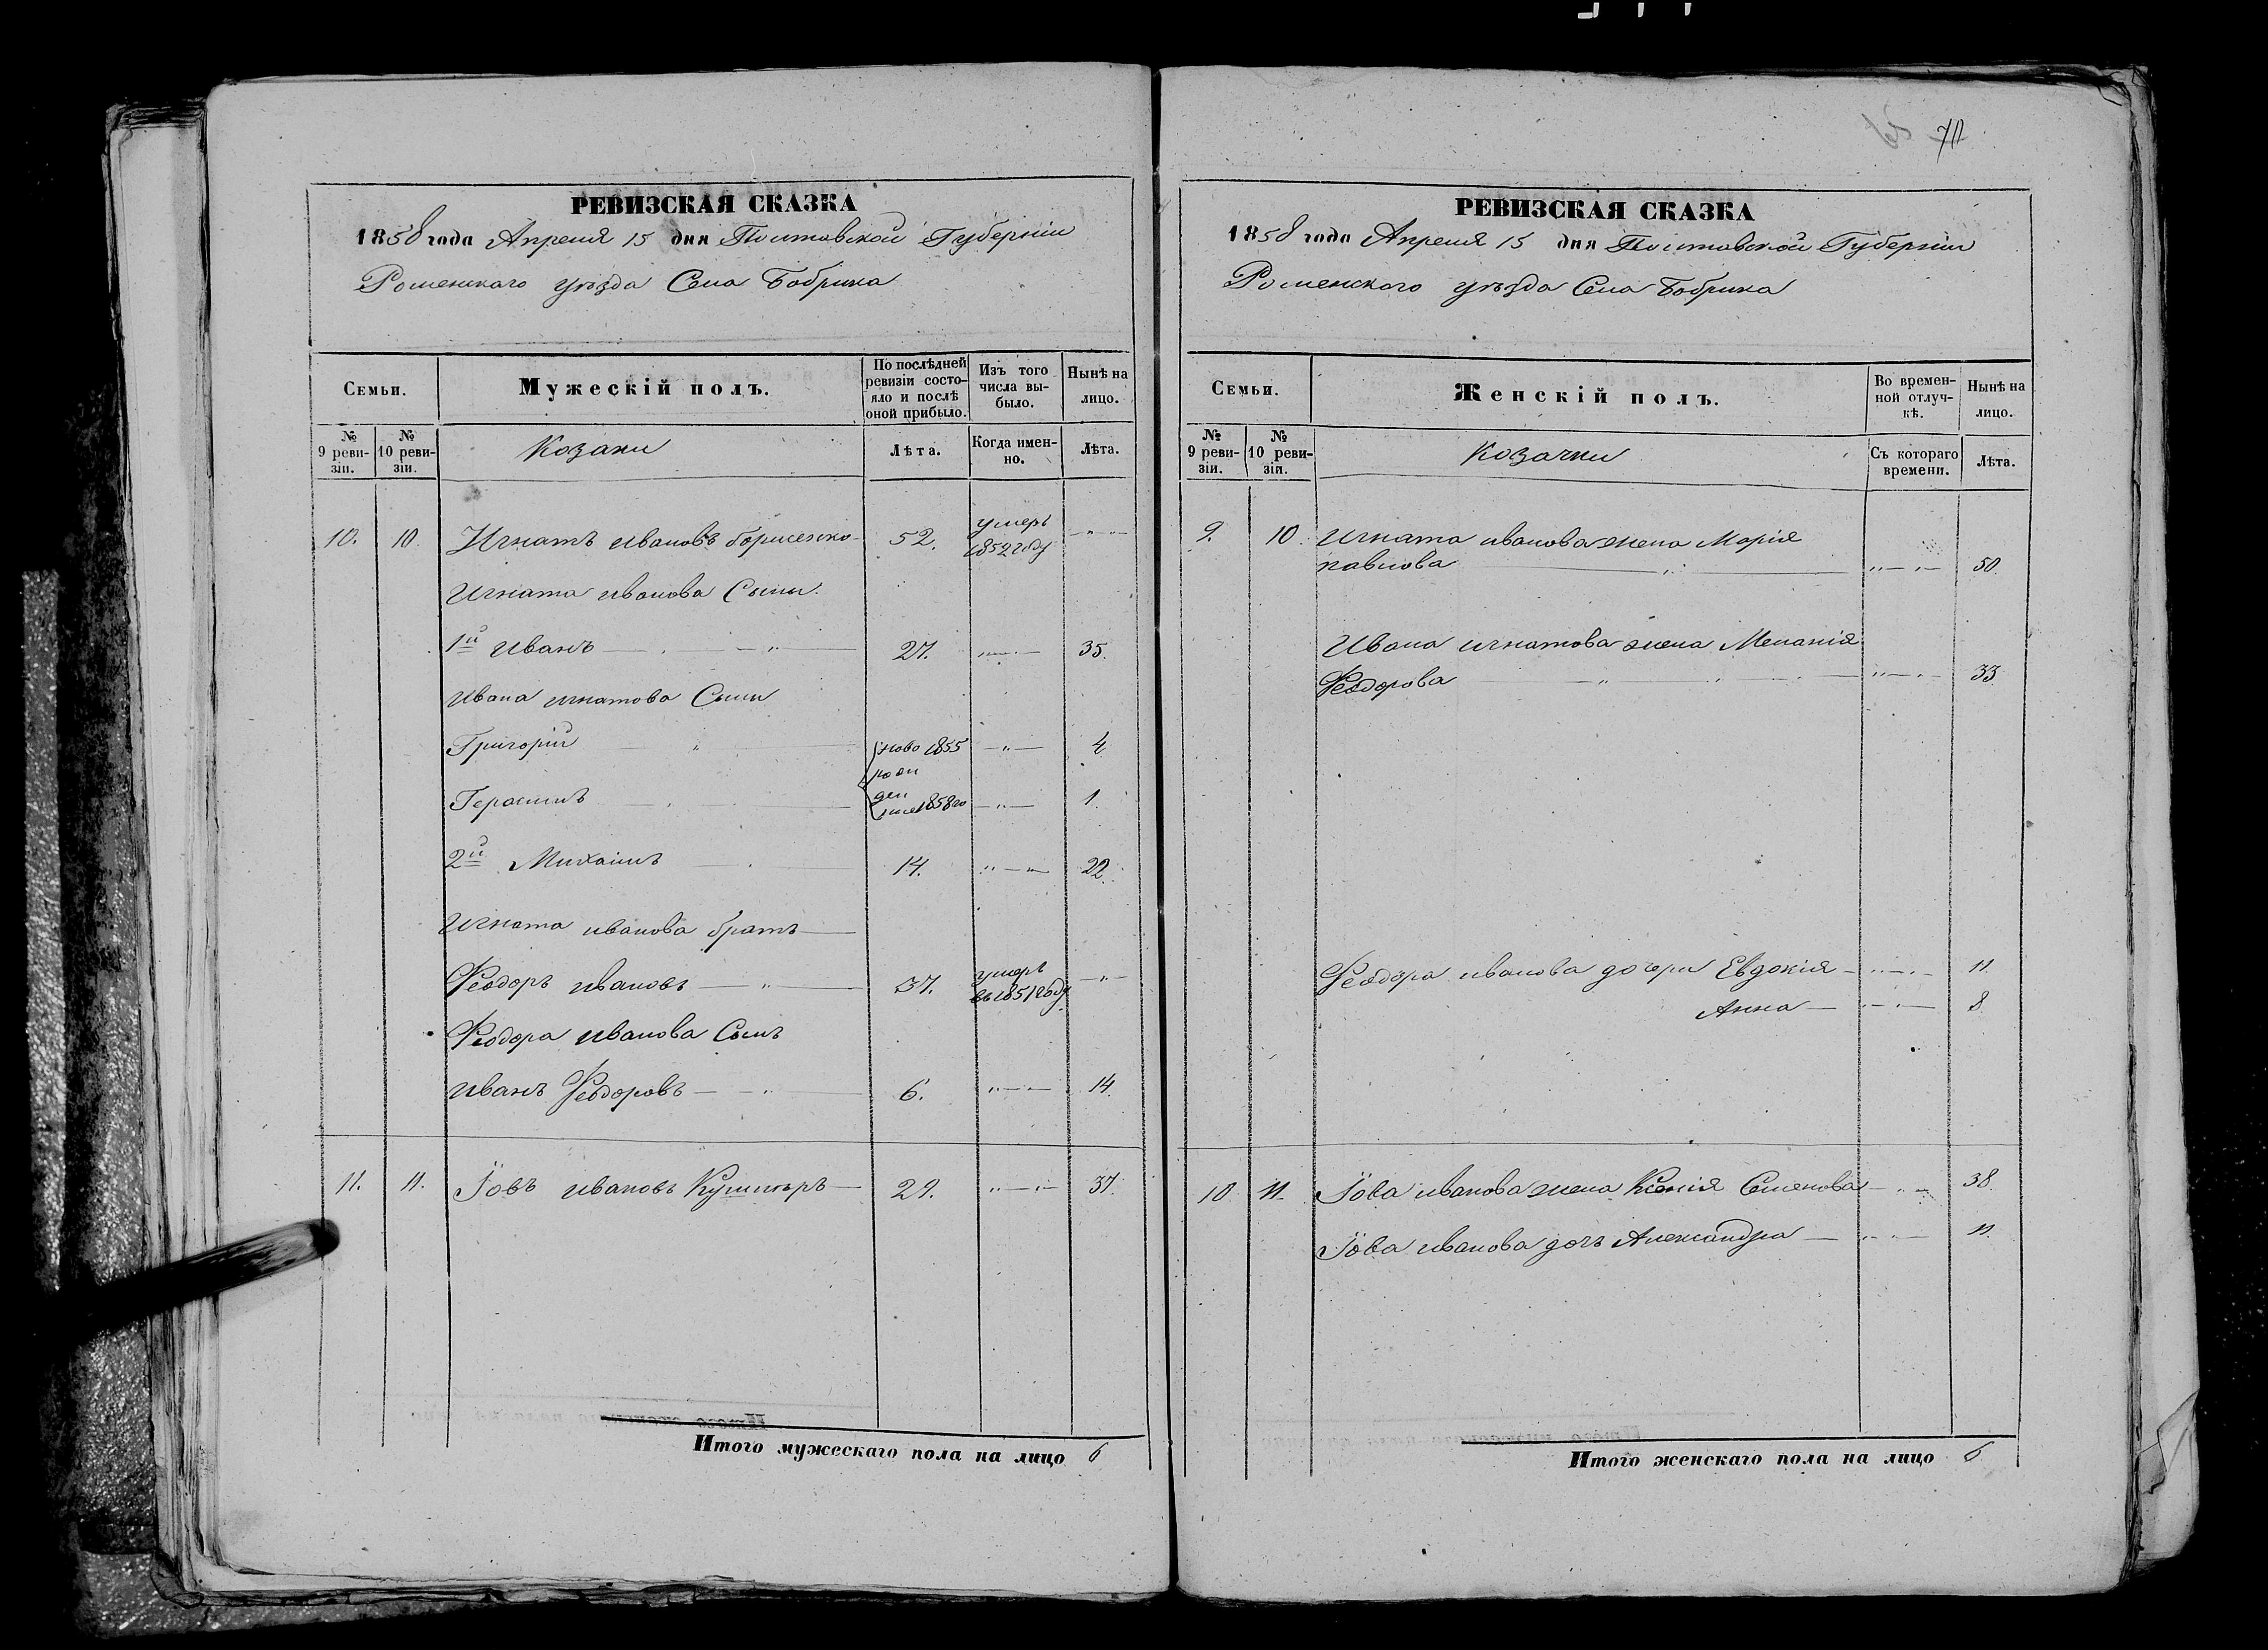 65 70
РЕВИЗСКАЯ СКАЗКА
1858 года Апреля 15 дня Полтавской Губерніи
Роменскаго уѣзда Села Бобрика
Семьи.
Мужескій полъ.
По послѣдней ревизіи состояло и послѣ оной прибыло.
Изъ того числа выбыло.
Нынѣ на лицо.
№ 9 ревизіи.
№ 10 ревизіи.
Козаки
Лѣта.
Когда именно.
Лѣта.
10. 10 Игнатъ Ивановъ Борисенко 52. умеръ 1852 году
Игната Иванова Сыны
1й Иванъ 27. 35.
Ивана Игнатова Сыны
Григорій ново 1855 4
рожден
Герасимъ ные 1858 го 1.
2й Михаилъ 14. 22.
Игната Иванова братъ
Феодоръ Ивановъ 37. умеръ въ 1851 году
Феодора Иванова Сынъ
Иванъ Феодоровъ 6. 14.
11. 11. Іовъ Ивановъ Кушниръ 29. 37.
Итого мужескаго пола на лицо 6
РЕВИЗСКАЯ СКАЗКА
1858 года Апреля 15 дня Полтавской Губерніи
Роменского уѣзда Села Бобрика
Семьи.
Женскій полъ.
Во временной отлучкѣ.
Нынѣ на лицо.
№ 9 ревизіи.
№ 10 ревизіи.
Козачки
Съ котораго времени.
Лѣта.
9. 10 Игната Иванова жена Марія
Павлова 50.
Ивана Игнатова жена Меланія
Феодорова 33
Феодора Иванова дочери Евдокія 11.
Анна 8
10 11. Іова Иванова жена Ксенія Семенова 38.
Іова Иванова дочь Александра 11.
Итого женскаго пола на лицо 6